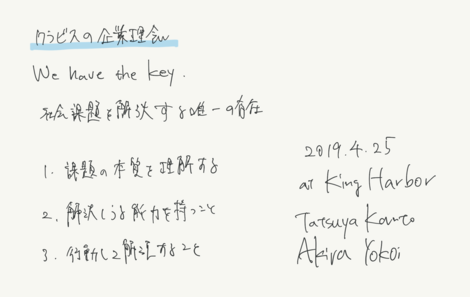 クラビスの企業理念
We have the key.
社会課題を解決する唯一の存在
1. 課題の本質を理解する
2. 解決しうる能力を持つこと
3. 行動して解決すること
2019.4.25
at King Harbor
Tatsuya
Akira Yokoi